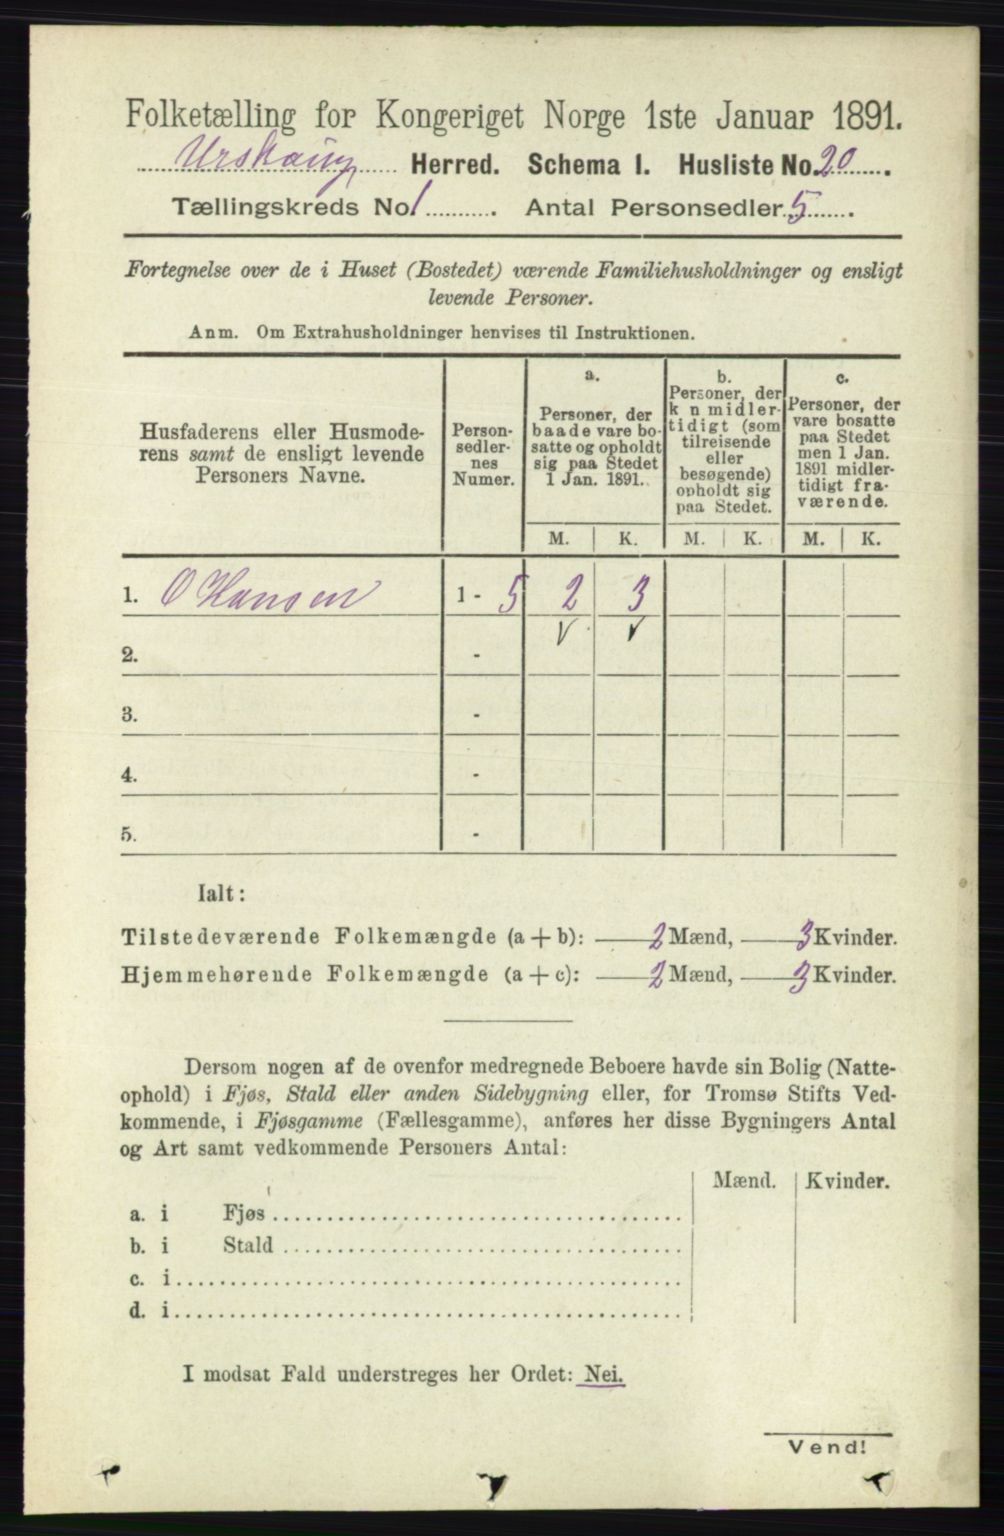 Folketælling for Kongeriget Norge 1ste Januar 1891.
Urskoug Herred. Schema I. Husliste No. 20.
Tællingskreds No. 1. Antal Personsedler 5.
Fortegnelse over de i Huset (Bostedet) værende Familiehusholdninger og ensligt
levende Personer.
Anm. Om Extrahusholdninger henvises til Instruktionen.
Husfaderens eller Husmode-
rens samt de ensligt levende
Personers Navne.
Person-
sedler-
nes
Numer.
a.
Personer, der
baade vare bo-
satte og opholdt
sig paa Stedet
1 Jan. 1891.
b.
Personer, der
k n midler-
tidigt (som
tilreisende
eller
besøgende)
opholdt sig
paa Stedet.
c.
Personer, der
vare bosatte
paa Stedet
men 1 Jan.
1891 midler-
tidigt fra-
værende.
M. K. M. K. M. K.
1. O Hansen 1 - 5 2 3
2. -
3. -
4. -
5. -
Ialt:
Tilstedeværende Folkemængde (a + b): 2 Mænd, 3 Kvinder.
Hjemmehørende Folkemængde (a + c): 2 Mænd, 3 Kvinder.
Dersom nogen af de ovenfor medregnede Beboere havde sin Bolig (Natte-
ophold) i Fjøs, Stald eller anden Sidebygning eller, for Tromsø Stifts Ved-
kommende, i Fjøsgamme (Fællesgamme), anføres her disse Bygningers Antal
og Art samt vedkommende Personers Antal:
Mænd. Kvinder.
a. i Fjøs
b. i Stald
c. i
d. i
I modsat Fald understreges her Ordet: Nei.
Vend!